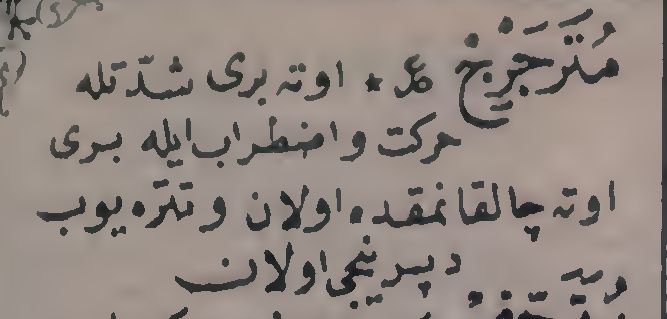 مُتَرَجْرِجْ عر * اوته بری شدّتله
حرکت و اضطراب ایله بری
اوته چالقانمقده اولان و تتره یوب
دپرینجی اولان